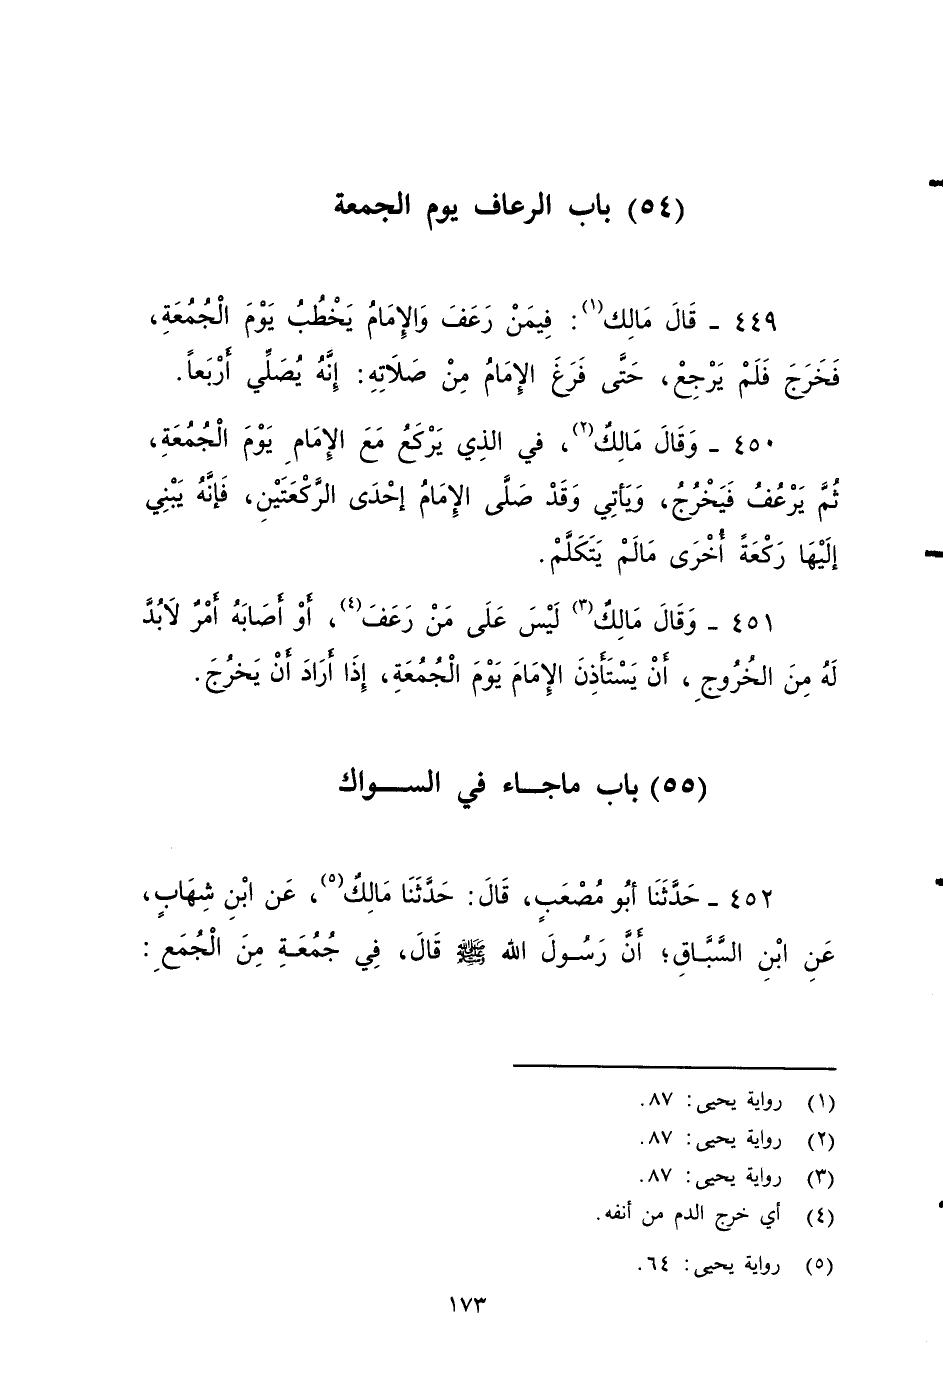 (٥٤) باب الرعاف يوم الجمعة
٤٤٩ ـ قَالَ مَالِك(١): فِيمَنْ رَعَفَ وَالإِمَامُ يَخْطُبُ يَوْمَ الْجُمُعَةِ،
فَخَرَجَ فَلَمْ يَرْجِعْ، حَتَّى فَرَغَ الإِمَامُ مِنْ صَلَاتِهِ: إِنَّهُ يُصَلِّي أَرْبَعاً.
٤٥٠ ـ وَقَالَ مَالِكٌ(٢)، في الذِي يَرْكَعُ مَعَ الإِمَامِ يَوْمَ الْجُمُعَةِ،
ثُمَّ يَرْعُفُ فَيَخْرُجُ، وَيَأتِي وَقَدْ صَلَّى الإِمَامُ إحْدَى الرَّكْعَتَيْنِ، فَإنَّهُ يَبْنِي
إلَيْهَا رَكْعَةً أُخْرَى مَالَمْ يَتَكَلَّمْ.
٤٥١ ـ وَقَالَ مَالِكٌ(٣) لَيْسَ عَلَى مَنْ رَعَفَ(٤)، أَوْ أَصَابَهُ أَمْرٌ لَابُدَّ
لَهُ مِنَ الخُرُوجِ، أَنْ يَسْتَأَذِنَ الإِمَامَ يَوْمَ الْجُمُعَةِ، إِذَا أَرَادَ أَنْ يَخرُجَ.
(٥٥) باب ماجـاء في الســواك
٤٥٢ ـ حَدَّثَنَا أبُو مُصْعَبٍ، قَالَ: حَدَّثَنَا مَالِكٌ(٥)، عَن ابْنِ شِهَابٍ،
عَنِ ابْنِ السَّبَّاقِ؛ أَنَّ رَسُولَ الله ﷺ قَالَ، فِي جُمُعَةٍ مِنَ الْجُمَعِ:
(١) رواية يحيى: ٨٧.
(٢) رواية يحيى: ٨٧.
(٣) رواية يحيى: ٨٧.
(٤) أي خرج الدم من أنفه.
(٥) رواية يحيى: ٦٤.
١٧٣